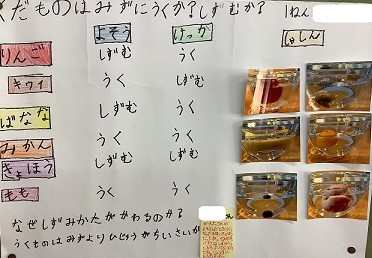 くだものはみずにうくか？しずむか？ 1ねん
よそう けっか しゃしん
りんご しずむ うく
キウイ うく うく
ばなな しずむ うく
みかん うく うく
きょほう しずむ しずむ
もも うく うく
なぜしずみかたがかわるのか？
うくものはみずよりひじゅうがちいさいか